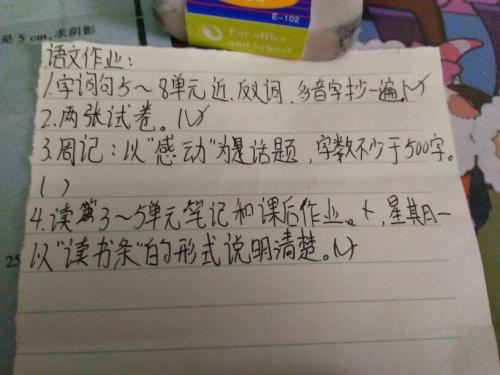 是 5 cm,求阴影
E-102
For office
and School
语文作业:
1.字词句5~8单元近、反义词、多音字抄一遍。(✓)
2.两张试卷。(✓)
3.周记:以"感动"为是话题,字数不少于500字。
( )
4.读第3~5单元笔记和课后作业。
,星期日一
以"读书条"的形式说明清楚。(✓)
25